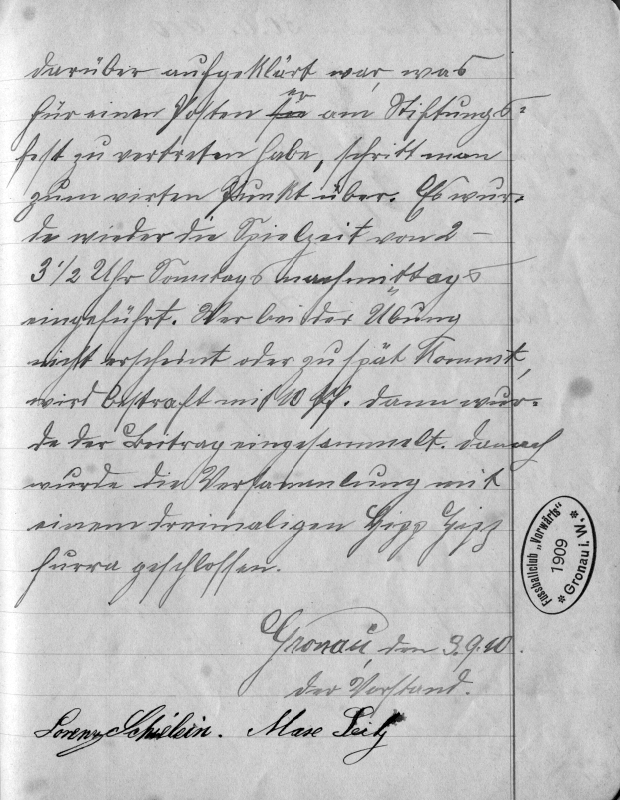 darüber aufgeklärt war, was
für einen Posten er am Stiftungs-
fest zu vertreten habe, schritt man
zum virten Punkt über. Es wur-
de wieder die Spielzeit von 2 –
3 1/2 Uhr Sonntags nachmittags
eingeführt. Wer bei der Übung
nicht erscheint oder zu spät kommt,
wird bestraft mit 10 Pf. dann wur-
de der Beitrag eingesammelt. danach
wurde die Versammlung mit
einem dreimaligen Hipp Hipp
hurra geschlossen.
Fussballclub „Vorwärts“
1909
* Gronau i. W. *
Gronau, den 3.9.10.
der Vorstand.
Lorenz Schielein. Max Seitz